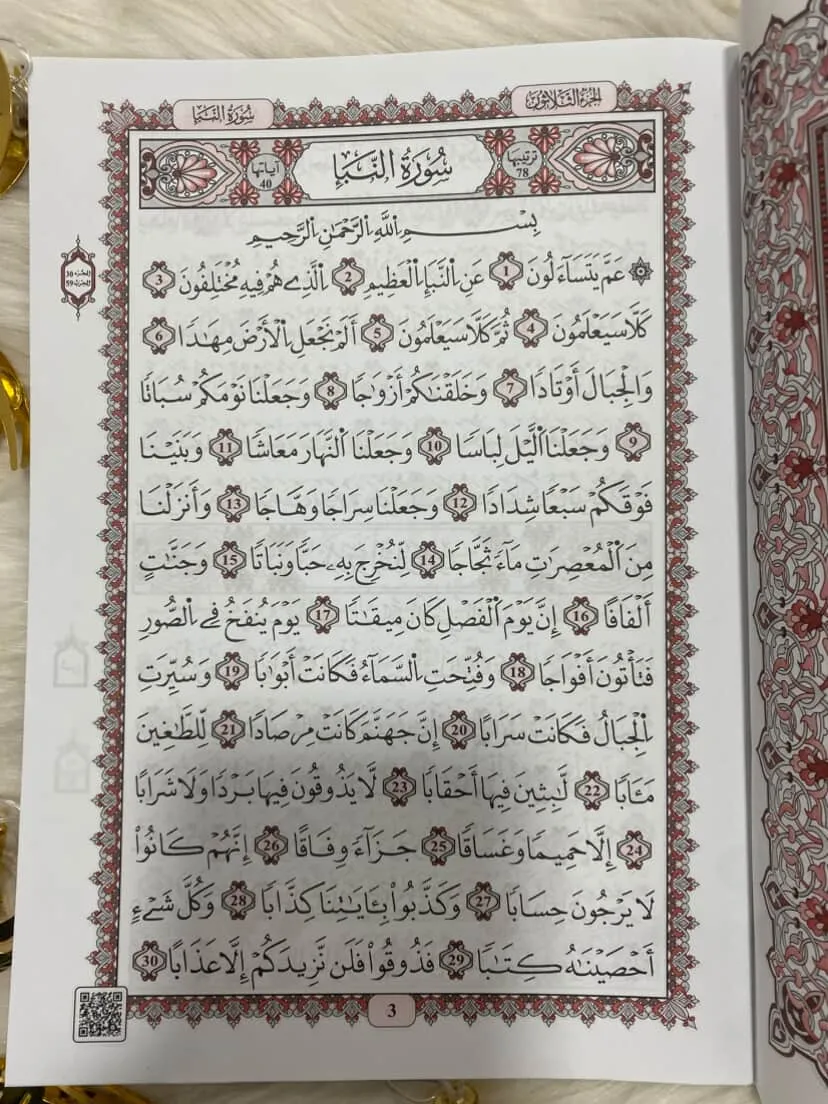 سُورَةُ النَّبَإِ
الجزء الثلاثون
ترتيبها 78
سُورَةُ النَّبَإِ
آياتها 40
بِسْمِ اِ۬للَّهِ اِ۬لرَّحْمَٰنِ اِ۬لرَّحِيمِ
۞ عَمَّ يَتَسَآءَلُونَ 1 عَنِ اِ۬لنَّبَإِ اِ۬لْعَظِيمِ 2 اِ۬لَّذِے هُمْ فِيهِ مُخْتَلِفُونَ 3
كَلَّا سَيَعْلَمُونَ 4 ثُمَّ كَلَّا سَيَعْلَمُونَ 5 أَلَمْ نَجْعَلِ اِ۬لْأَرْضَ مِهَٰدًا 6
وَالْجِبَالَ أَوْتَادًا 7 وَخَلَقْنَٰكُمْ أَزْوَٰجًا 8 وَجَعَلْنَا نَوْمَكُمْ سُبَاتًا
9 وَجَعَلْنَا اَ۬ليْلَ لِبَاسًا 10 وَجَعَلْنَا اَ۬لنَّهَارَ مَعَاشًا 11 وَبَنَيْنَا
فَوْقَكُمْ سَبْعًا شِدَادًا 12 وَجَعَلْنَا سِرَاجًا وَهَّاجًا 13 وَأَنزَلْنَا
مِنَ اَ۬لْمُعْصِرَٰتِ مَآءً ثَجَّاجًا 14 لِّنُخْرِجَ بِهِۦ حَبًّا وَنَبَاتًا 15 وَجَنَّٰتٍ
أَلْفَافًا 16 إِنَّ يَوْمَ اَ۬لْفَصْلِ كَانَ مِيقَٰتًا 17 يَوْمَ يُنفَخُ فِے اِ۬لصُّورِ
فَتَأْتُونَ أَفْوَاجًا 18 وَفُتِّحَتِ اِ۬لسَّمَآءُ فَكَانَتْ أَبْوَٰبًا 19 وَسُيِّرَتِ
اِ۬لْجِبَالُ فَكَانَتْ سَرَابًا 20 إِنَّ جَهَنَّمَ كَانَتْ مِرْصَادًا 21 لِّلطَّٰغِينَ
مَـَٔابًا 22 لَّٰبِثِينَ فِيهَا أَحْقَابًا 23 لَّا يَذُوقُونَ فِيهَا بَرْدًا وَلَا شَرَابًا
24 إِلَّا حَمِيمًا وَغَسَاقًا 25 جَزَآءً وِفَاقًا 26 إِنَّهُمْ كَانُواْ
لَا يَرْجُونَ حِسَابًا 27 وَكَذَّبُواْ بِـَٔايَٰتِنَا كِذَّابًا 28 وَكُلَّ شَےْءٍ
أَحْصَيْنَٰهُ كِتَٰبًا 29 فَذُوقُواْ فَلَن نَّزِيدَكُمْ إِلَّا عَذَابًا 30
3